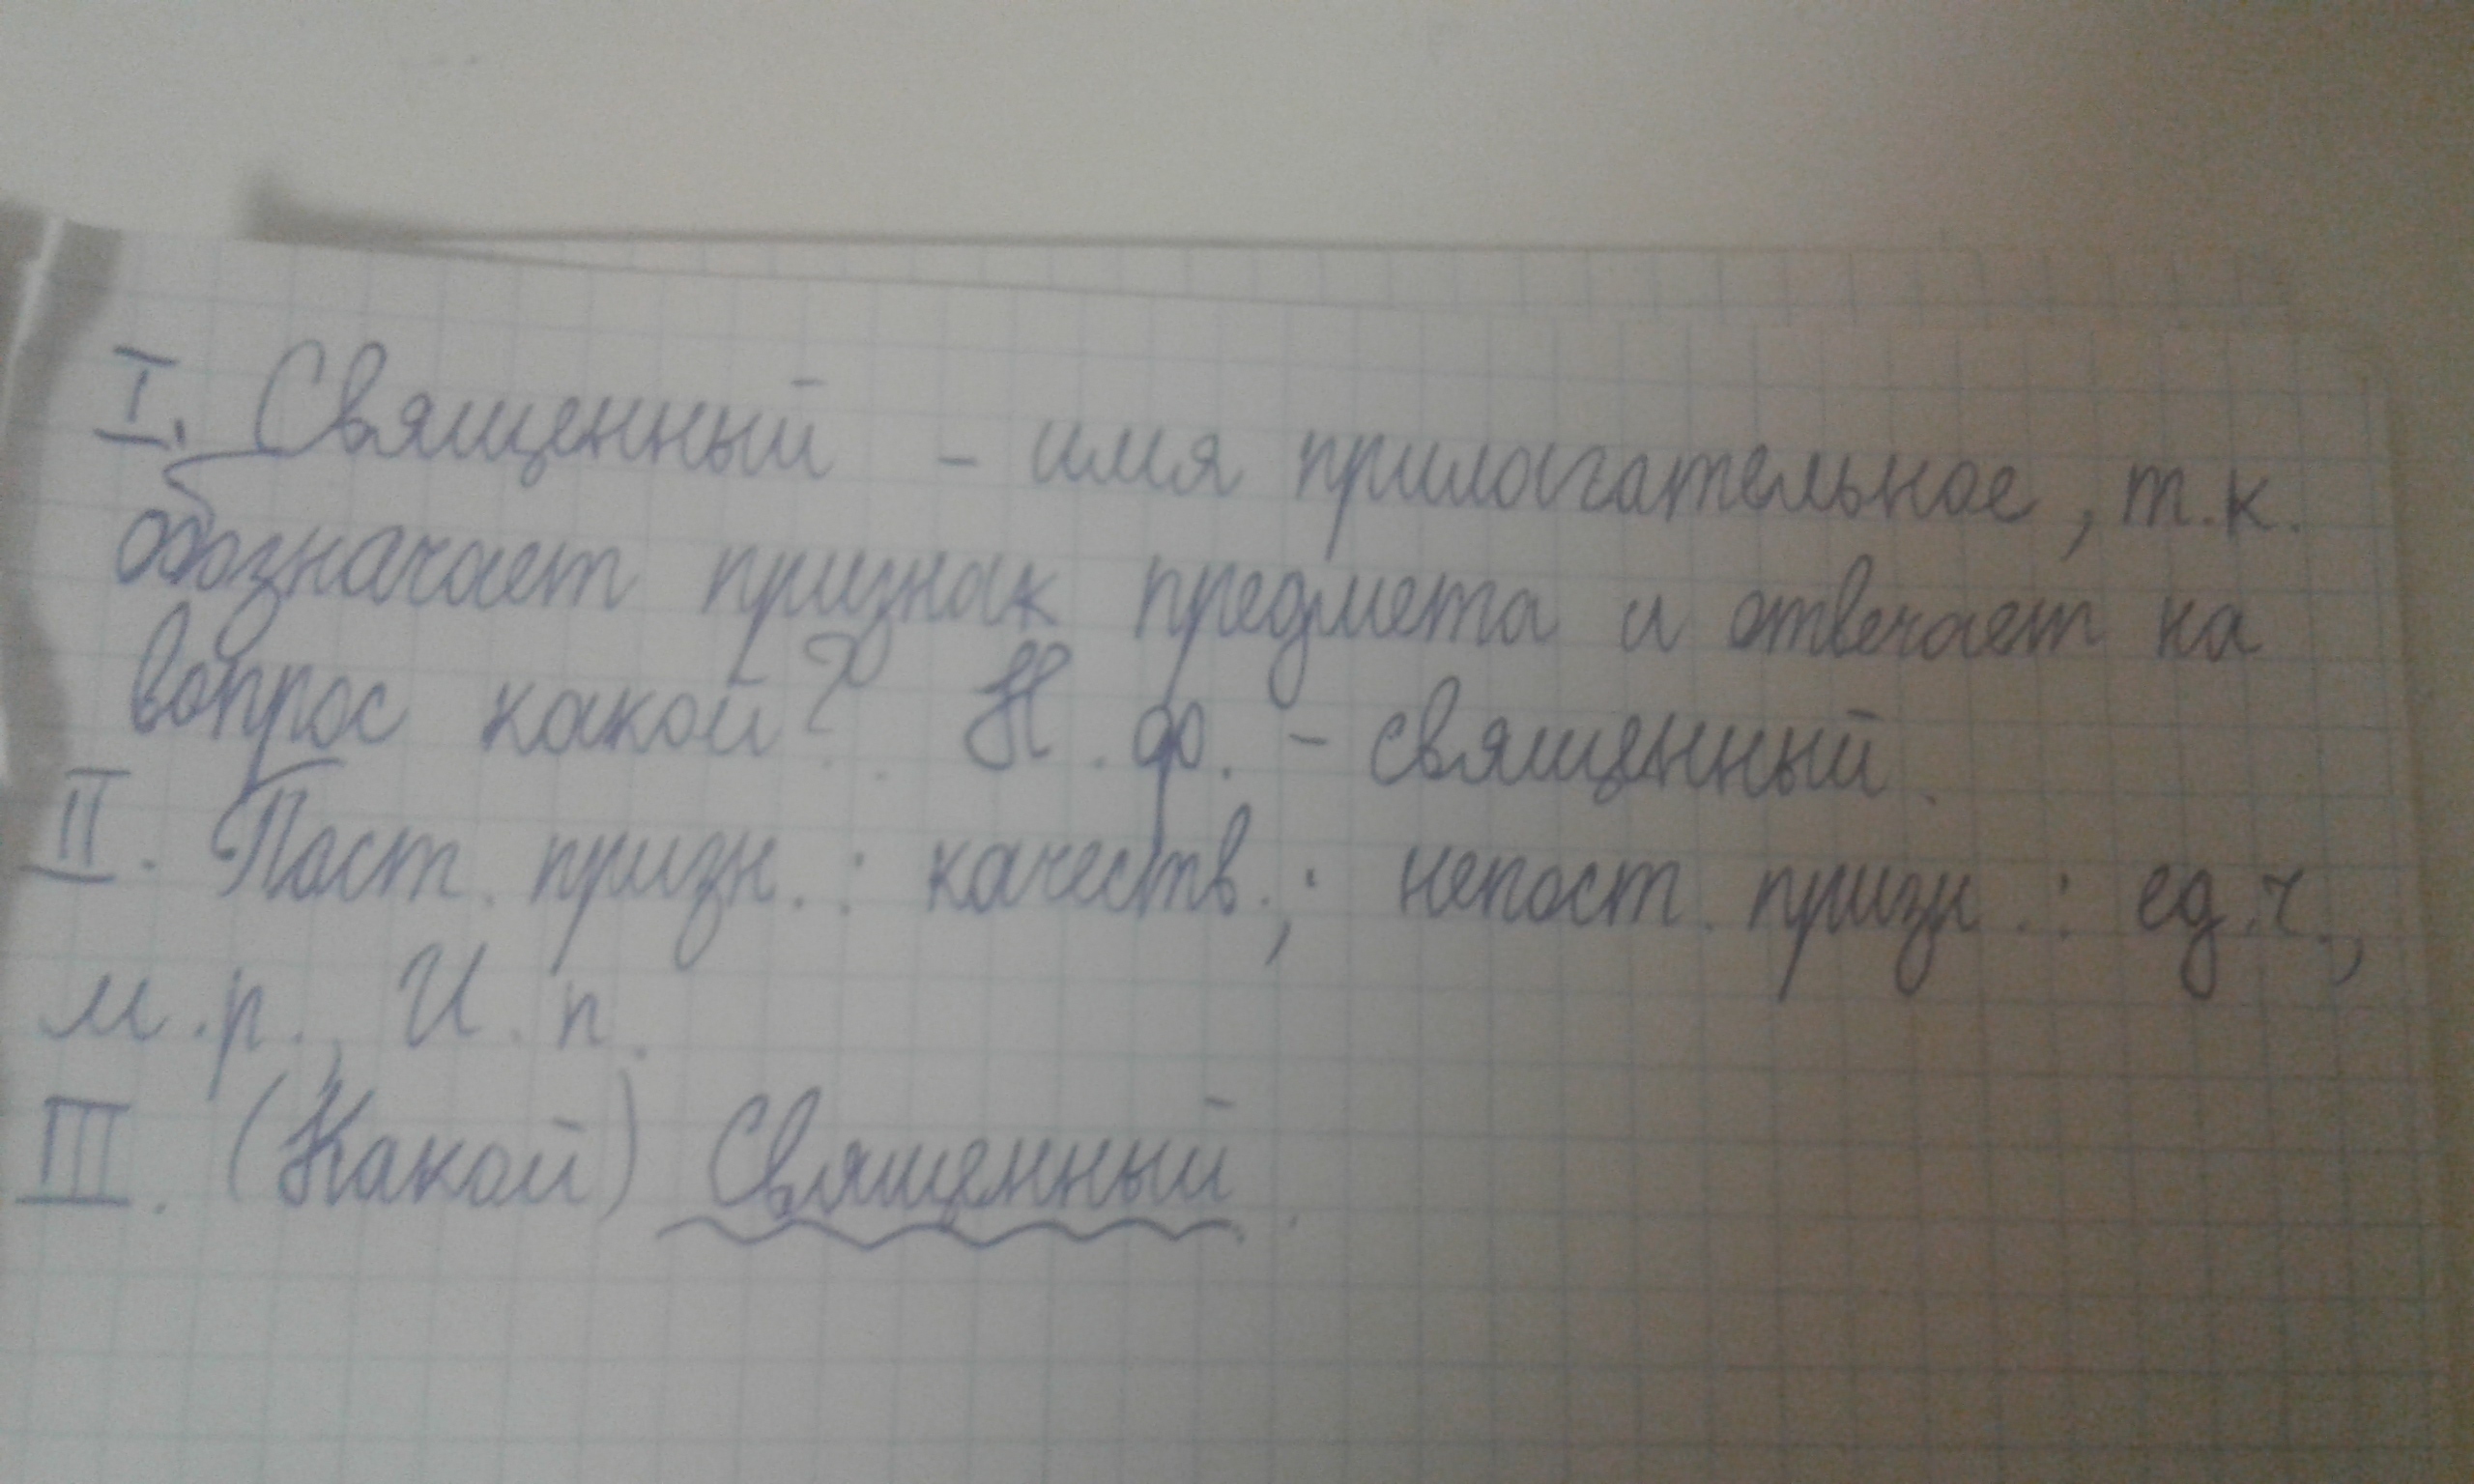 I. Священный - имя прилагательное, т.к.
обозначает признак предмета и отвечает на
вопрос какой? Н.ф. - священный.
II. Пост. призн.: качеств.; непост. призн.: ед.ч.,
м.р., И.п.
III. (Какой) Священный.